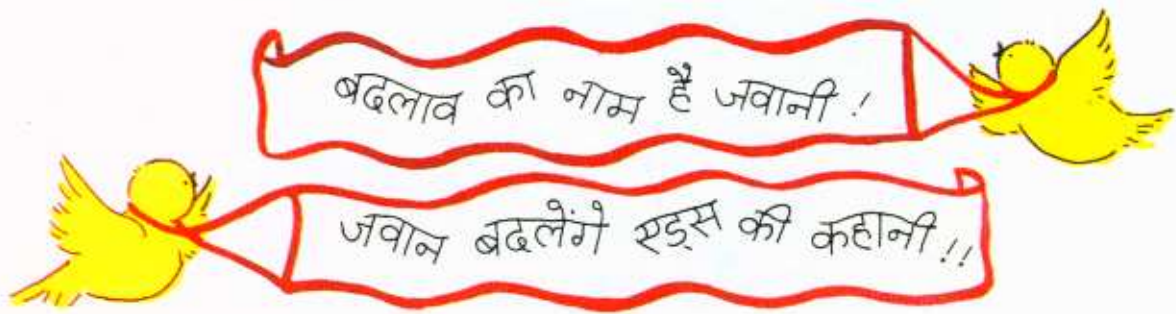 बदलाव का नाम है जवानी!
जवान बदलेंगे एड्स की कहानी!!